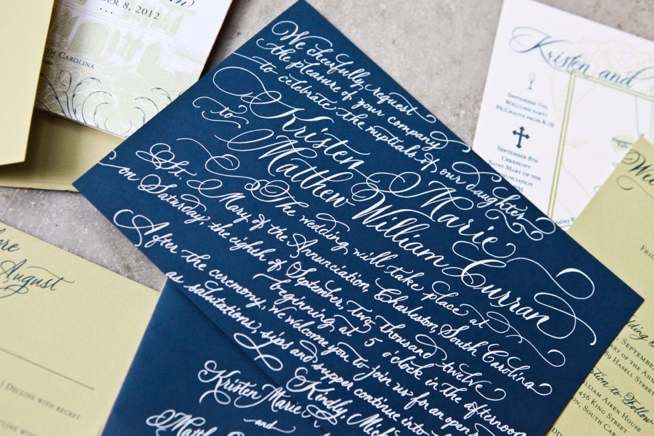 R 8, 2012
Carolina
We cheerfully request
the pleasure of your company
to celebrate the nuptials of our daughter
Kristen Marie
to
Matthew William Curran
The wedding will take place at
St. Mary of the Annunciation Charleston South Carolina
on Saturday, the eighth of September, two thousand twelve
beginning at 5 o'clock in the afternoon
After the ceremony, we welcome you to join us for an open
air salutations, sips and supper continue into
Kindly
Kristen Marie
and
Kristen and
September 7th
Welcome party
September 8th
Ceremony
Saint Mary of the
Annunciation
August
Decline with regret
of the Annun
Hasell Street
to Follow
William Aiken House
456 King Street